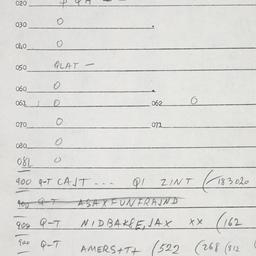 020
030 0
040 0
050 QLAT —
060 0
061 0 062 0
070 0 071
080 0
081 0
900 Q-T CAST --- QI ZINT (-183020
Q-T
900 Q-T NIDBAKSE, JAX xx (162
900 Q-T AMERS+T+ (522 (268 (512